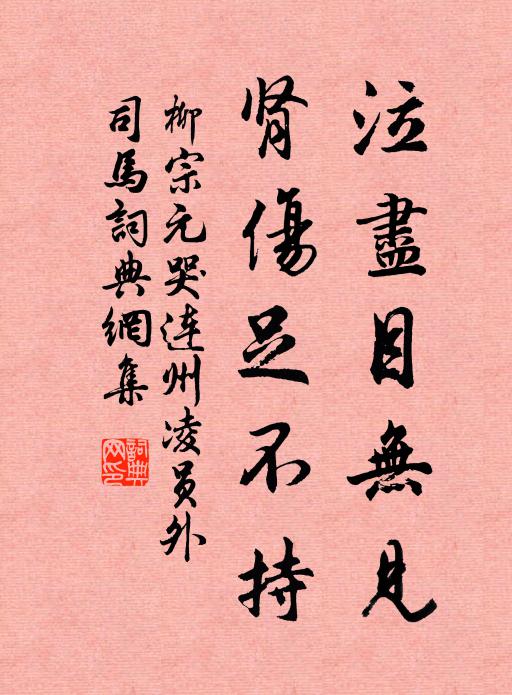 泣盡目無見
肾傷足不持
柳宗元哭连州凌员外
司馬詞典網集
詞典网印